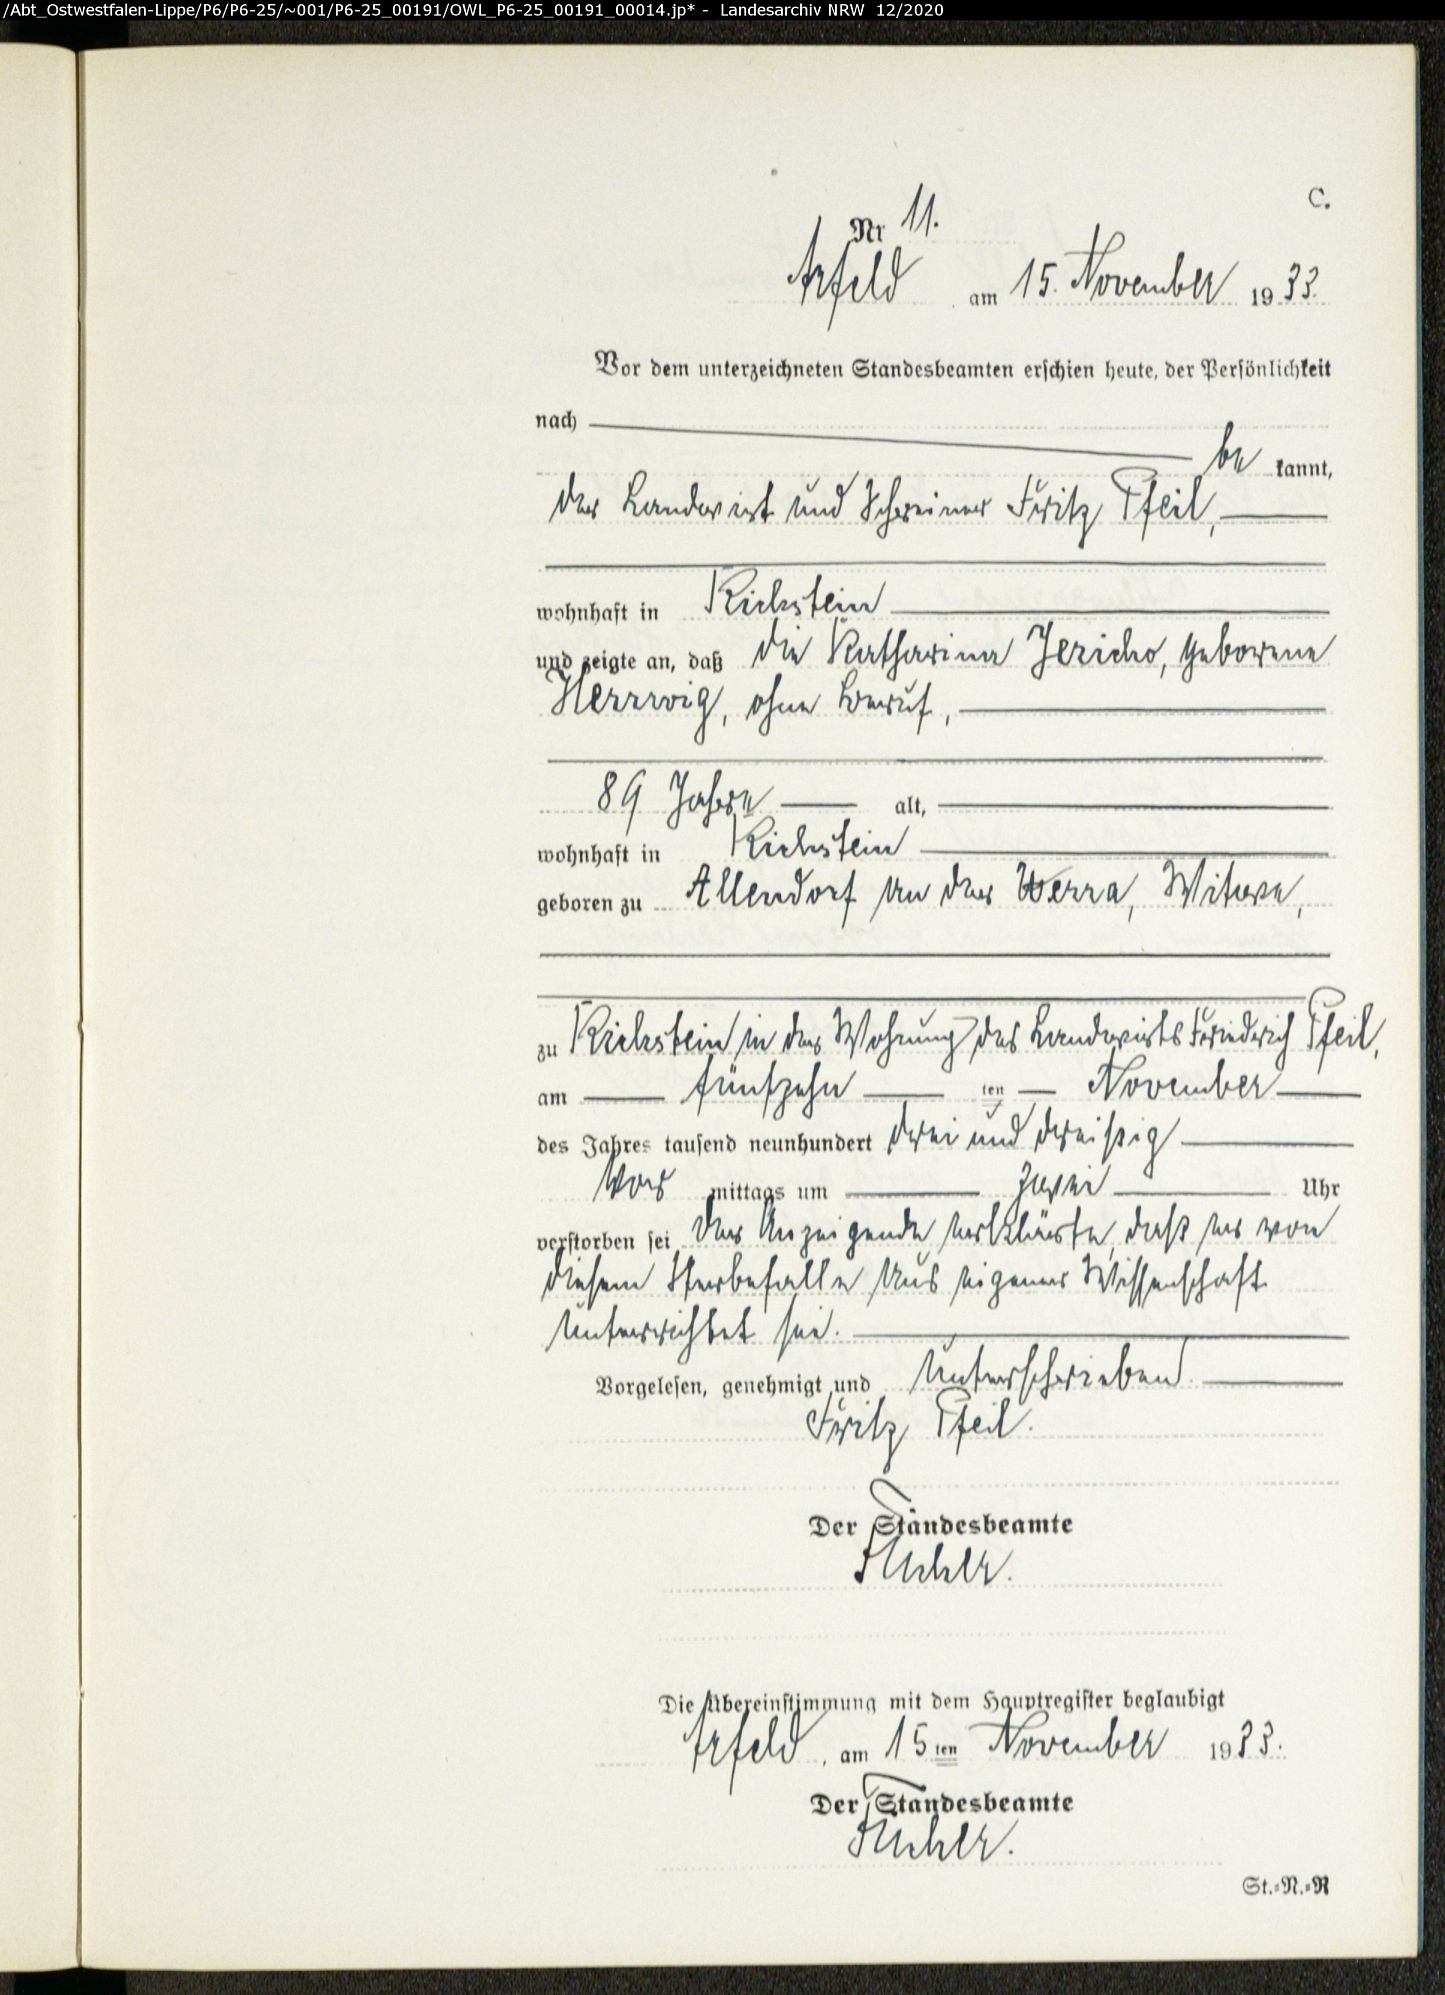 /Abt_Ostwestfalen-Lippe/P6/P6-25/~001/P6-25_00191/OWL_P6-25_00191_00014.jp* - Landesarchiv NRW 12/2020
C.
Nr 11.
Arfeld am 15. November 1933.
Vor dem unterzeichneten Standesbeamten erschien heute, der Persönlichkeit
nach
be kannt,
der Landwirt und Schreiner Fritz Pfeil,
wohnhaft in Richstein
und zeigte an, daß die Katharina Jericho, geborene
Herrwig, ohne Beruf,
89 Jahre alt,
wohnhaft in Richstein
geboren zu Allendorf an der Werra, Witwe,
zu Richstein in der Wohnung des Landwirts Friedrich Pfeil,
am fünfzehn ten November
des Jahres tausend neunhundert drei und dreißig
Vor mittags um zwei Uhr
verstorben sei. Der Anzeigende erklärte, daß er von
diesem Sterbefalle aus eigener Wissenschaft
unterrichtet sei.
Vorgelesen, genehmigt und unterschrieben
Fritz Pfeil.
Der Standesbeamte
Die Übereinstimmung mit dem Hauptregister beglaubigt
Arfeld, am 15 ten November 1933.
Der Standesbeamte
St.=N.=R